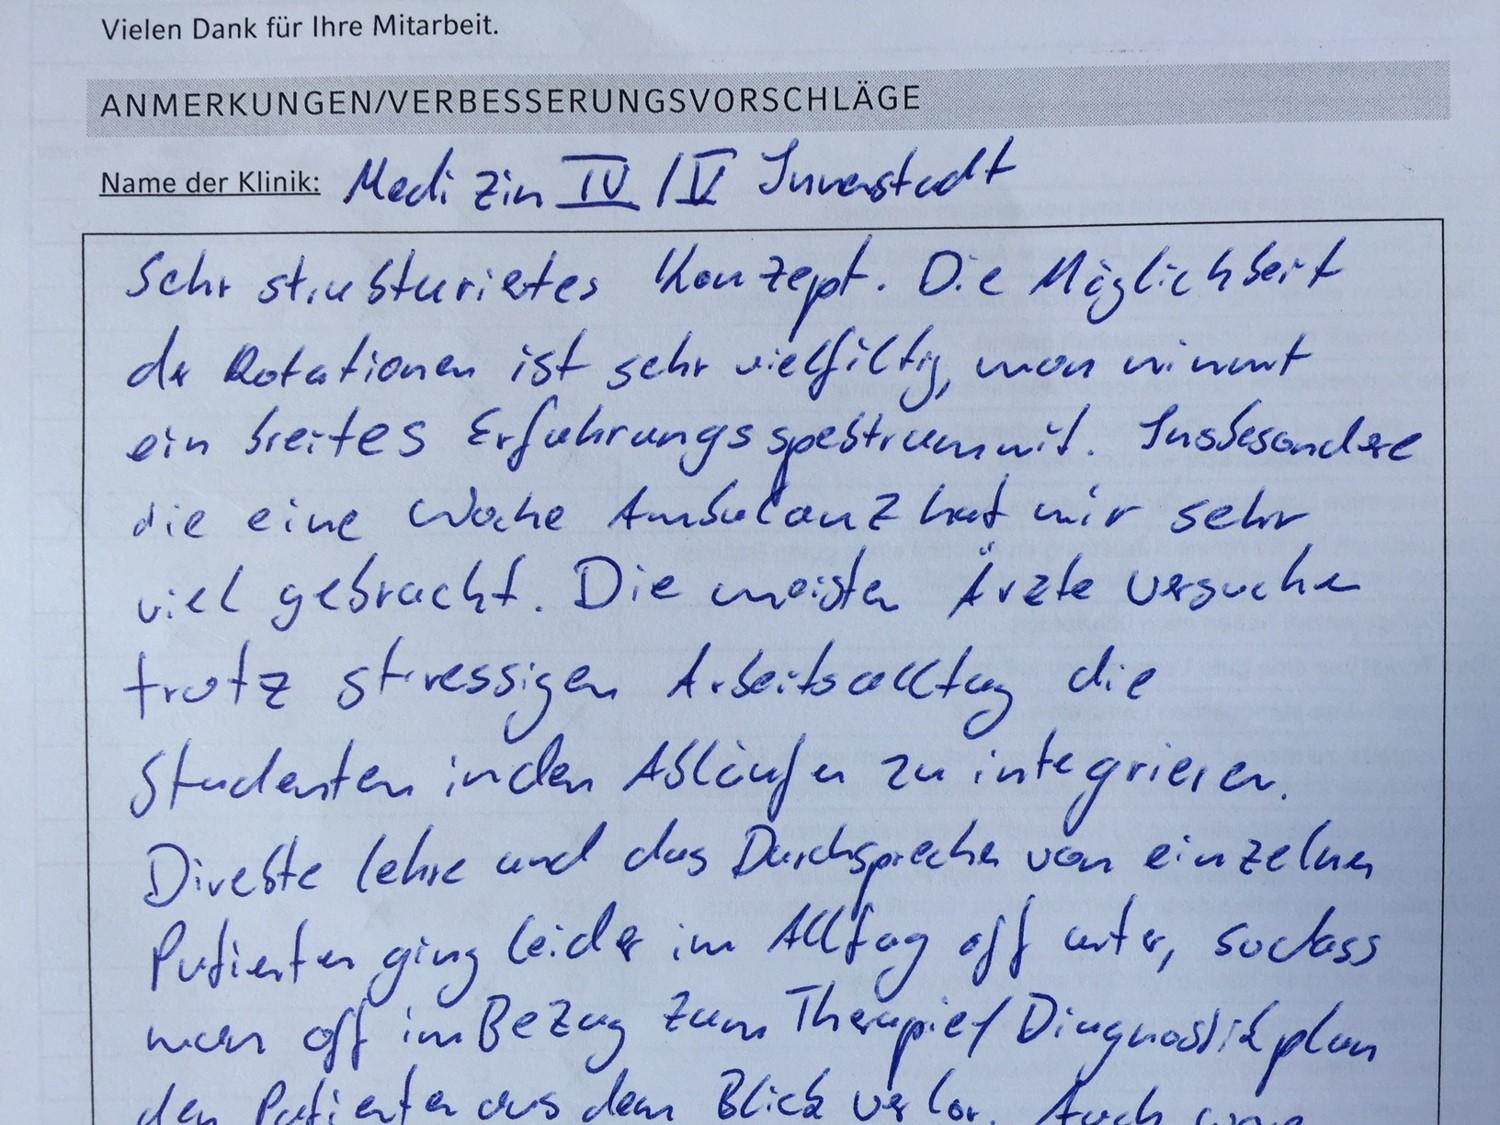 Vielen Dank für Ihre Mitarbeit.
ANMERKUNGEN/VERBESSERUNGSVORSCHLÄGE
Name der Klinik: Medizin IV / V Innenstadt
Sehr strukturiertes Konzept. Die Möglichkeit
der Rotationen ist sehr vielfältig, man nimmt
ein breites Erfahrungsspektrum mit. Insbesondere
die eine Woche Ambulanz hat mir sehr
viel gebracht. Die meisten Ärzte versuchen
trotz stressigen Arbeitsalltag die
Studenten in den Abläufen zu integrieren.
Direkte Lehre und das Durchsprechen von einzelnen
Patienten ging leider im Alltag oft unter, sodass
man oft im Bezug zum Therapie/Diagnostikplan
den Patienten aus dem Blick verlor. Auch wäre